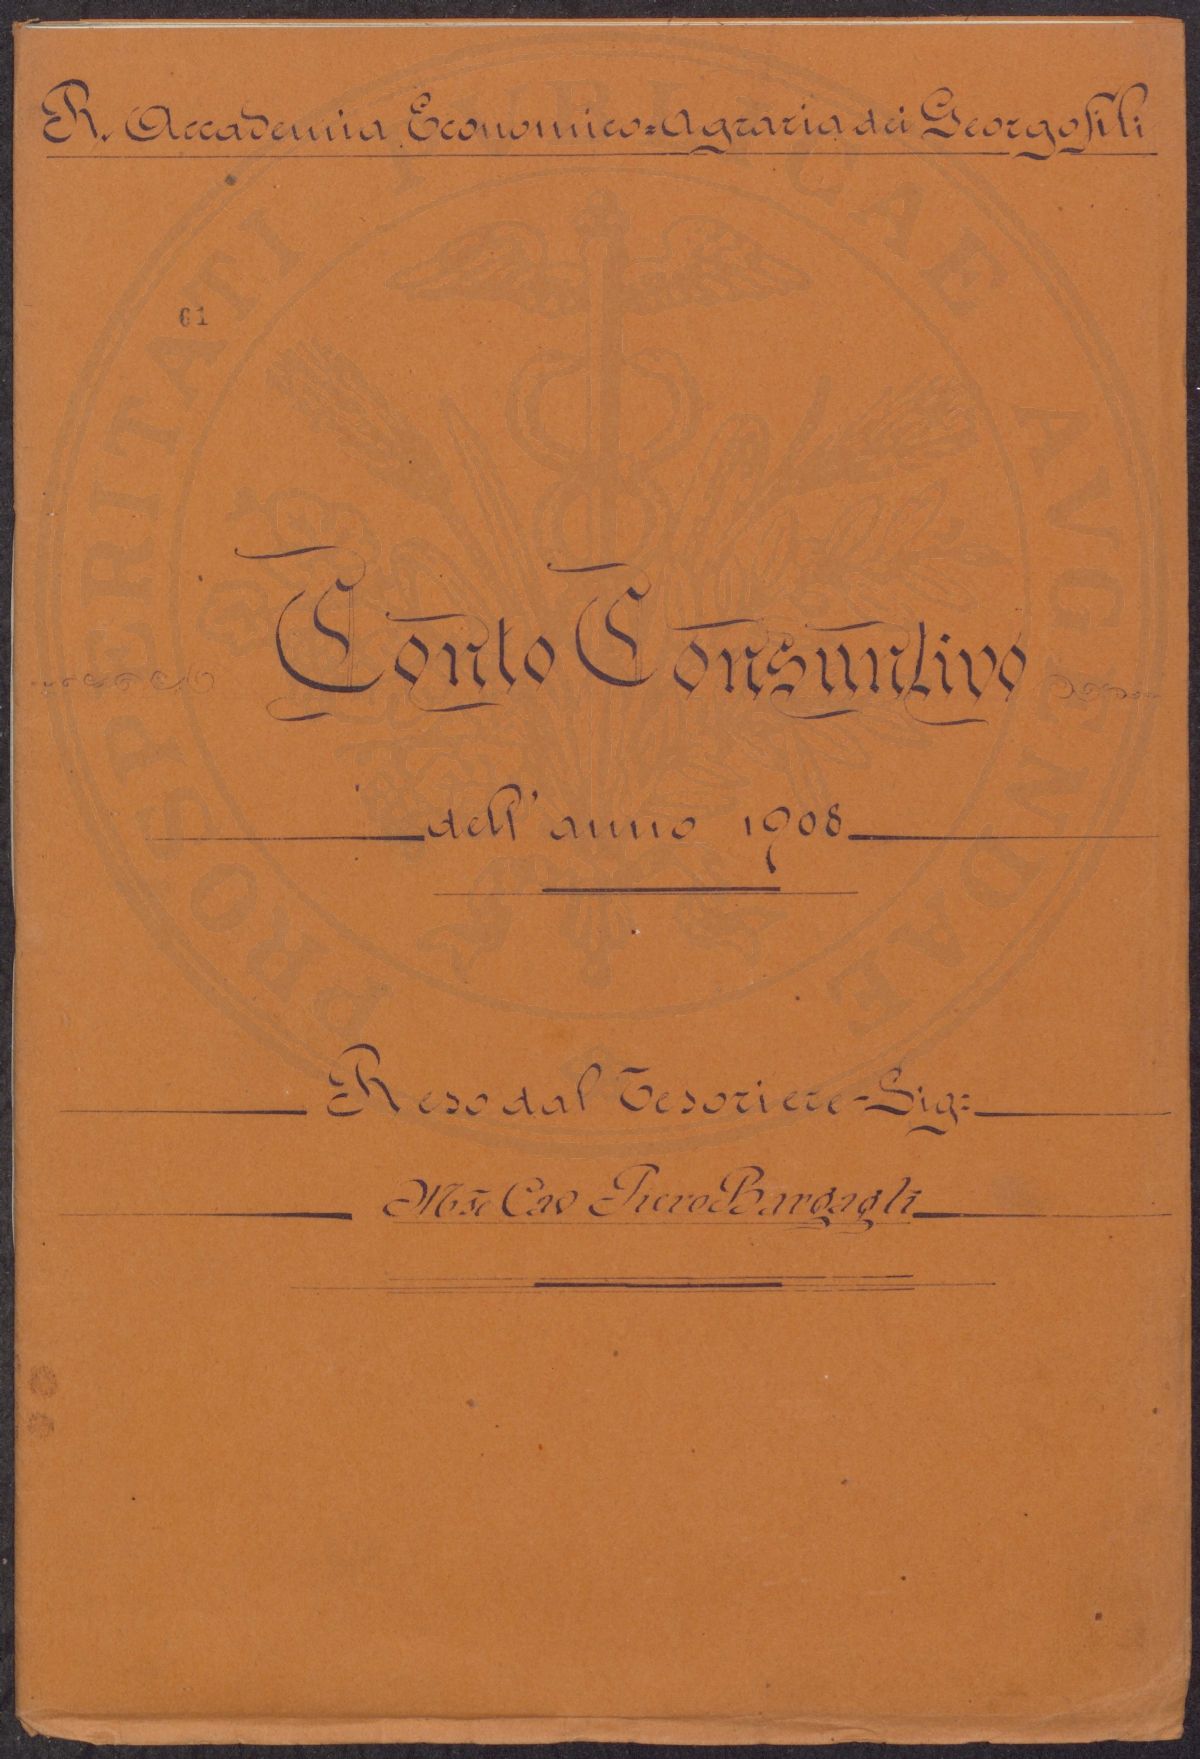 R. Accademia Economico=Agraria dei Georgofili
PROSPERITATI PVBLICAE AVGENDAE
61
Conto Consuntivo
dell' anno 1908
Reso dal Tesoriere - Sig:
Cav Piero Bargagli